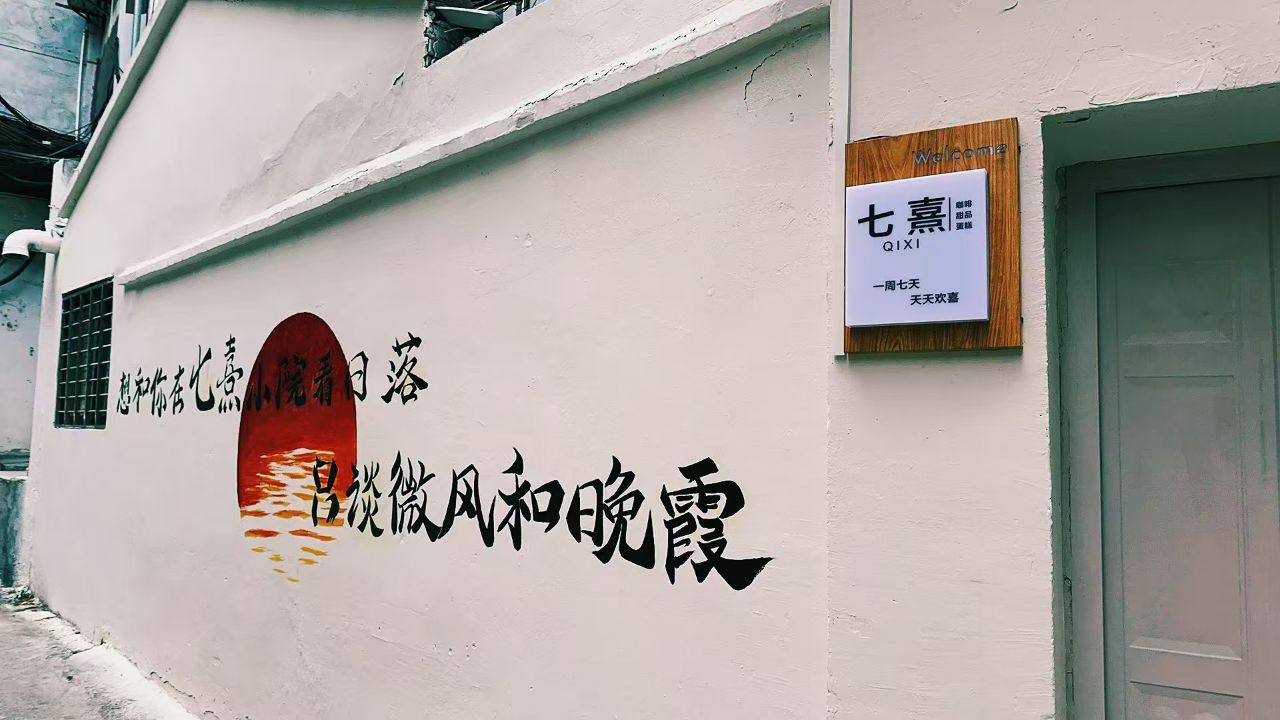 想和你在七熹小院看日落
吕谈微风和晚霞
Welcome
七熹
QIXI
咖啡
甜品
蛋糕
一周七天
天天欢喜